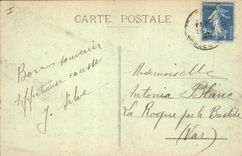 I
CARTE POSTALE
Bon souvenir
affectueuse caresse
J.
Mademoiselle
Antonia Blanc
La Roque par la Bastide
(Var)